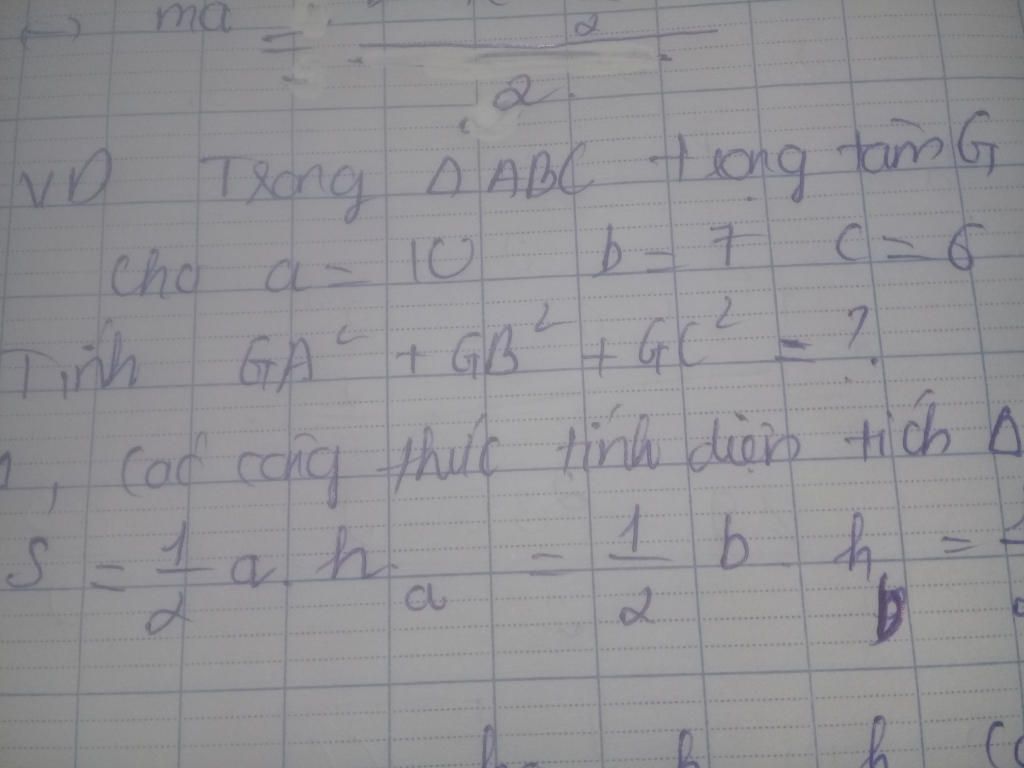 ma = 2
2
VD Trong Δ ABC trọng tâm G
cho a = 10 b = 7 c = 6
Tính GA² + GB² + GC² = ?
, Các công thức tính diện tích Δ
S = 1/2 a. h a = 1/2 b. h b = 1
h h h